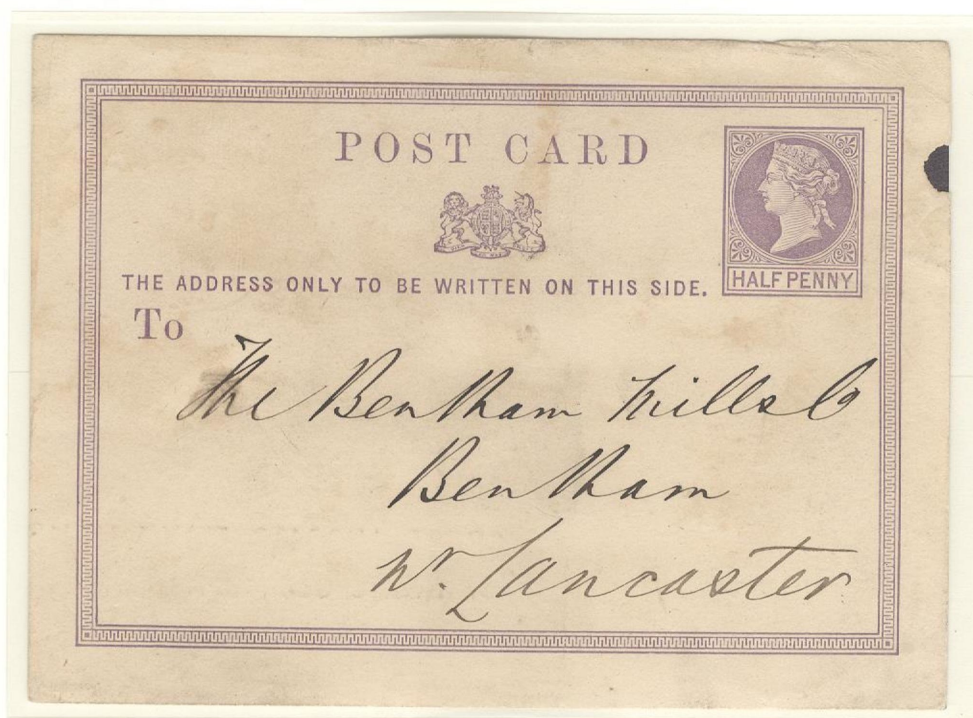 POST CARD
HALFPENNY
THE ADDRESS ONLY TO BE WRITTEN ON THIS SIDE.
To
The Bentham Mills Co
Bentham
Nr. Lancaster